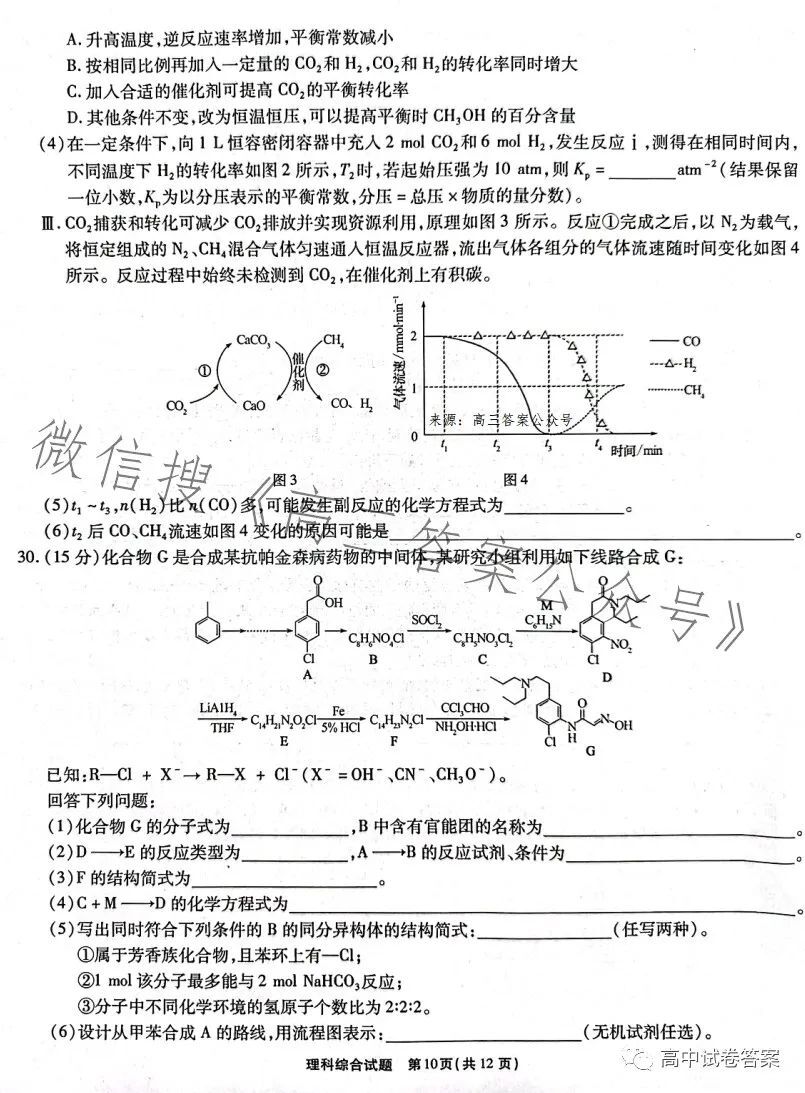 A.升高温度,逆反应速率增加,平衡常数减小
B.按相同比例再加入一定量的 CO₂和 H₂,CO₂和 H₂的转化率同时增大
C.加入合适的催化剂可提高 CO₂的平衡转化率
D.其他条件不变,改为恒温恒压,可以提高平衡时 CH₃OH 的百分含量
(4)在一定条件下,向 1 L 恒容密闭容器中充入 2 mol CO₂和 6 mol H₂,发生反应 ⅰ,测得在相同时间内,
不同温度下 H₂的转化率如图 2 所示,T₂时,若起始压强为 10 atm,则 Kₚ=______atm⁻²(结果保留
一位小数,Kₚ为以分压表示的平衡常数,分压=总压×物质的量分数)。
Ⅲ.CO₂捕获和转化可减少 CO₂排放并实现资源利用,原理如图 3 所示。反应①完成之后,以 N₂为载气,
将恒定组成的 N₂、CH₄混合气体匀速通入恒温反应器,流出气体各组分的气体流速随时间变化如图 4
所示。反应过程中始终未检测到 CO₂,在催化剂上有积碳。
CaCO₃ CH₄
① 催化剂 ②
CO₂ CaO CO、H₂
图 3
气体流速/mmol·min⁻¹
2
1
0
t₁ t₂ t₃ t₄ 时间/min
CO
H₂
CH₄
来源:高三答案公众号
图 4
微信搜《高三答案公众号》
(5)t₁~t₃,n(H₂)比 n(CO)多,可能发生副反应的化学方程式为____________。
(6)t₂ 后 CO、CH₄流速如图 4 变化的原因可能是____________。
30.(15 分)化合物 G 是合成某抗帕金森病药物的中间体,某研究小组利用如下线路合成 G:
O
OH
Cl
A
C₈H₆NO₄Cl
B
SOCl₂
C₈H₅NO₃Cl₂
C
M
C₆H₁₅N
O
N
NO₂
Cl
D
LiAlH₄
THF
C₁₄H₂₁N₂O₂Cl
E
Fe
5% HCl
C₁₄H₂₃N₂Cl
F
CCl₃CHO
NH₂OH·HCl
N
Cl
N
H
O
N
OH
G
已知:R—Cl + X⁻→ R—X + Cl⁻(X⁻ =OH⁻、CN⁻、CH₃O⁻)。
回答下列问题:
(1)化合物 G 的分子式为____________,B 中含有官能团的名称为____________。
(2)D ⟶E 的反应类型为____________,A ⟶B 的反应试剂、条件为____________。
(3)F 的结构简式为____________。
(4)C+M⟶D 的化学方程式为____________。
(5)写出同时符合下列条件的 B 的同分异构体的结构简式:____________(任写两种)。
①属于芳香族化合物,且苯环上有—Cl;
②1 mol 该分子最多能与 2 mol NaHCO₃反应;
③分子中不同化学环境的氢原子个数比为 2:2:2。
(6)设计从甲苯合成 A 的路线,用流程图表示:____________(无机试剂任选)。
理科综合试题 第 10页(共 12 页)
高中试卷答案